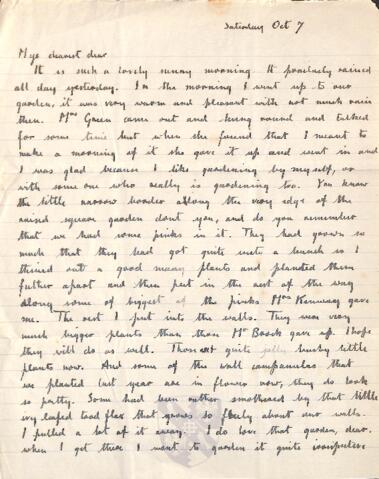 Saturday Oct 7
My dearest dear
It is such a lovely sunny morning. It practically rained
all day yesterday. In the morning I went up to our
garden, it was very warm and pleasant with not much rain
then. Mrs Green came out and hung round and talked
for some time but when she found that I meant to
make a morning of it she gave it up and went in and
I was glad because I like gardening by myself, or
with some one who really is gardening too. You know
the little narrow border along the very edge of the
raised square garden dont you, and do you remember
that we had some pinks in it. They had grown so
much that they had got quite into a bunch so I
thinned out a good many plants and planted them
further apart and then put in the rest of the way
along some of biggest of the pinks Mrs gave
me. The rest I put into the walls. They were very
much bigger plants than those Mr gave up. I hope
they will do as well. quite jolly bushy little
plants now. And some of the wall campanulas that
we planted last year are in flower now, they do look
so pretty. Some had been rather smothered by that little
ivy leafed toad flax that grows so freely about our walls.
I pulled a lot of it away. I do love that garden, dear.
when I get there I want to garden it quite